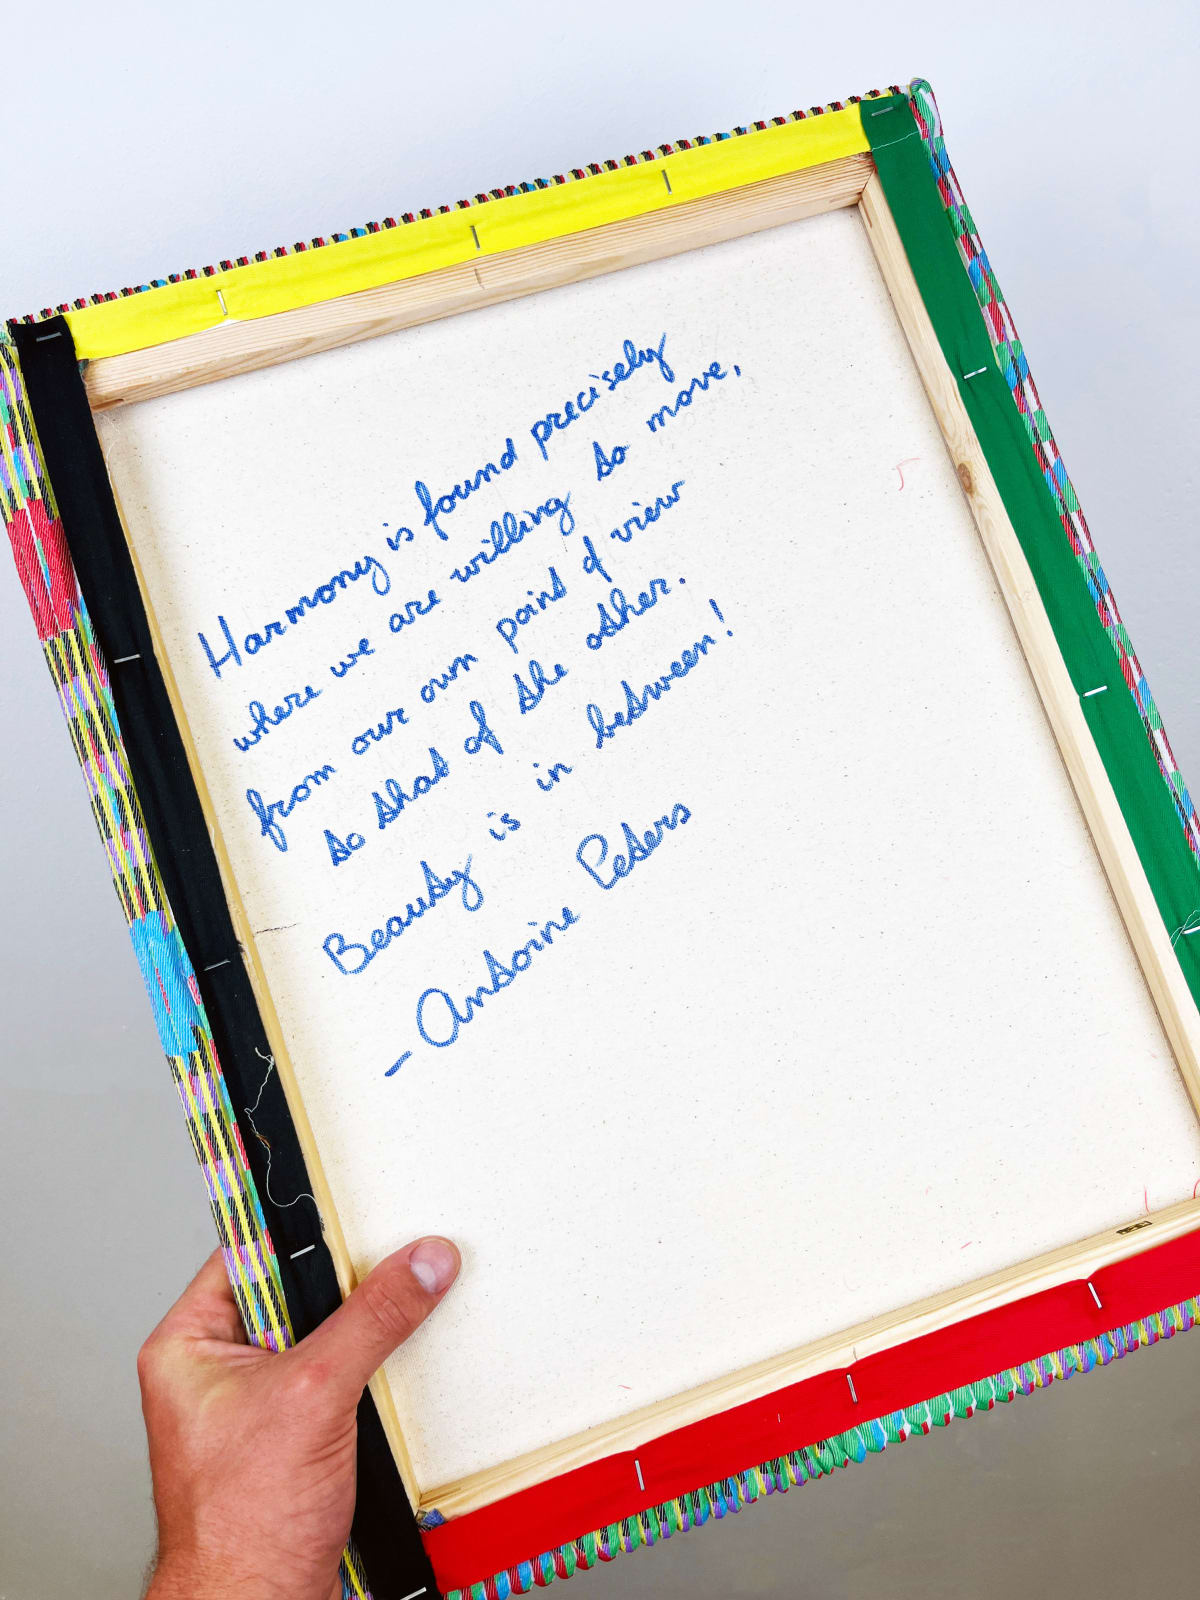 Harmony is found precisely
where we are willing to move,
from our own point of view
to that of the other.
Beauty is in between!
- Antoine Peters